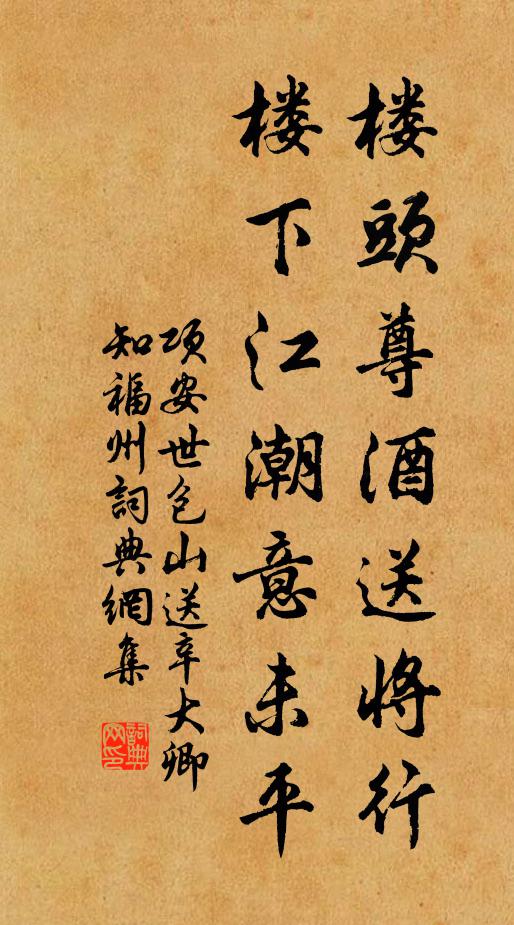 楼頭尊酒送将行
楼下江潮意未平
项安世包山送辛大卿
知福州詞典網集
詞典网印